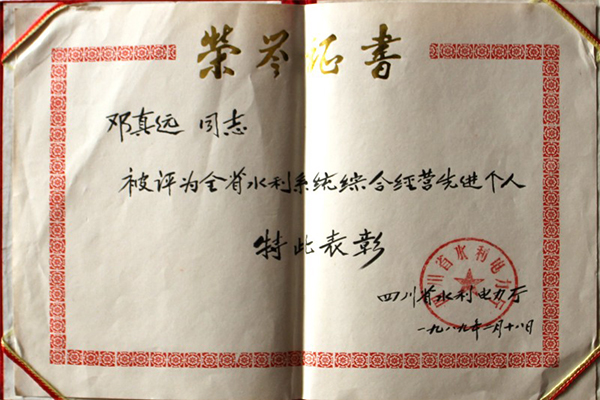 荣誉证书
邓真远 同志
被评为全省水利系统综合经营先进个人
特此表彰
四川省水利电力厅
四川省水利电力厅
一九八九年二月十八日